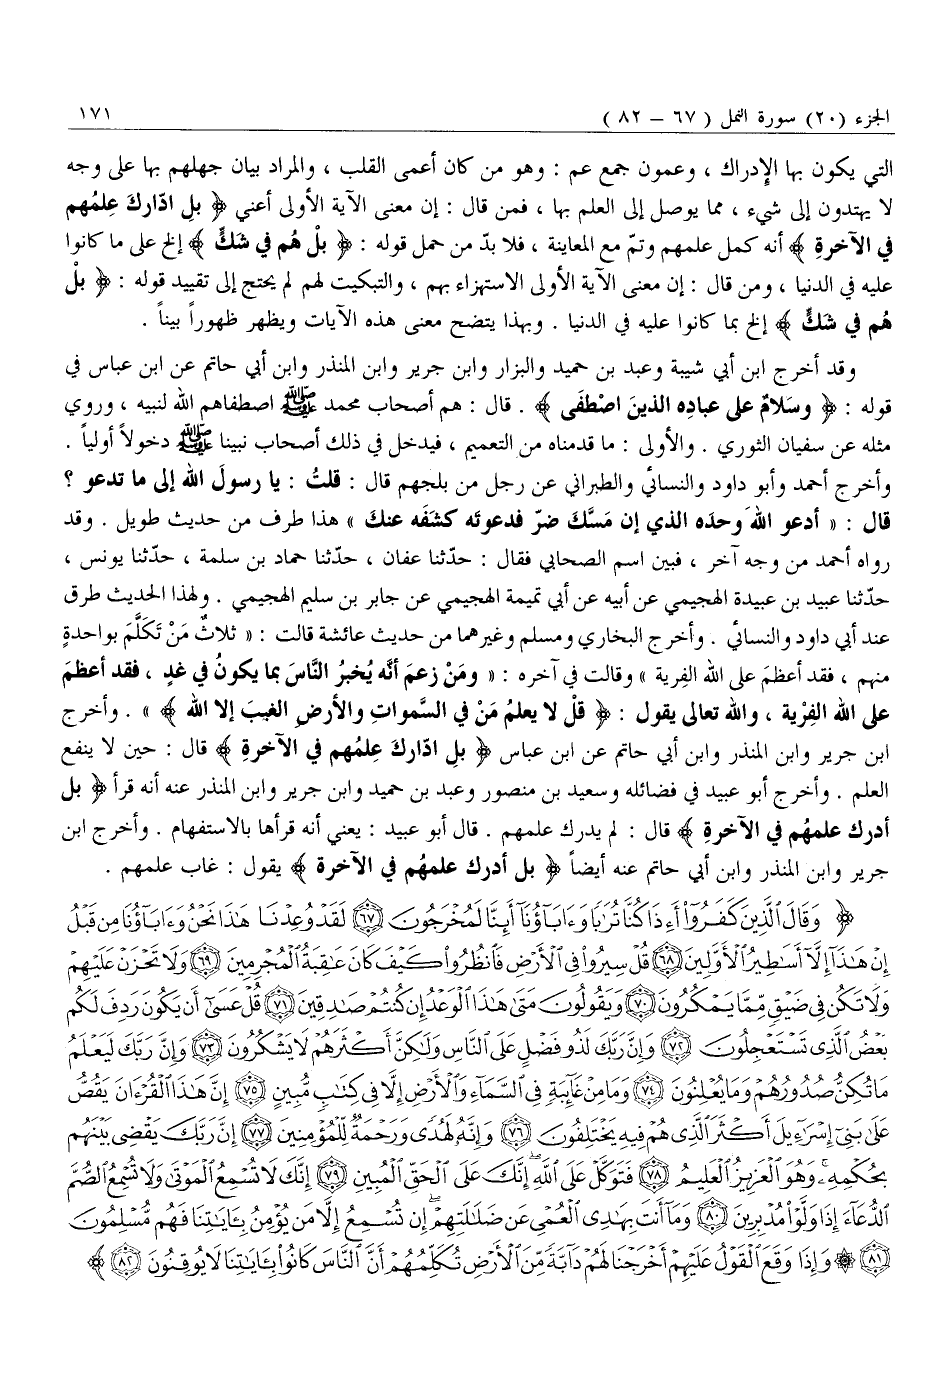 الجزء (٢٠) سورة النمل ( ٦٧ – ٨٢ ) ١٧١
التي يكون بها الإدراك ، وعمون جمع عم : وهو من كان أعمى القلب ، والمراد بيان جهلهم بها على وجه
لا يهتدون إلى شيء ، مما يوصل إلى العلم بها ، فمن قال : إن معنى الآية الأولى أعني ﴿ بلِ ادّاركَ عِلمُهم
في الآخرةِ ﴾ أنه كمل علمهم وتمّ مع المعاينة ، فلا بدّ من حمل قوله : ﴿ بلْ هُم في شكٍّ ﴾ إلخ على ما كانوا
عليه في الدنيا ، ومن قال : إن معنى الآية الأولى الاستهزاء بهم ، والتبكيت لهم لم يحتج إلى تقييد قوله : ﴿ بلْ
هُم في شكٍّ ﴾ إلخ بما كانوا عليه في الدنيا . وبهذا يتضح معنى هذه الآيات ويظهر ظهوراً بيناً .
وقد أخرج ابن أبي شيبة وعبد بن حميد والبزار وابن جرير وابن المنذر وابن أبي حاتم عن ابن عباس في
قوله : ﴿ وسَلامٌ على عبادِه الذينَ اصْطفَى ﴾ . قال : هم أصحاب محمد ﷺ اصطفاهم الله لنبيه ، وروي
مثله عن سفيان الثوري . والأولى : ما قدمناه من التعميم ، فيدخل في ذلك أصحاب نبينا ﷺ دخولاً أولياً .
وأخرج أحمد وأبو داود والنسائي والطبراني عن رجل من بلجهم قال : قلتُ : يا رسولَ الله إلى ما تدعو ؟
قال : « أدعو اللهَ وحدَه الذي إن مَسَّكَ ضرّ فدعوتَه كشفَه عنكَ » هذا طرف من حديث طويل . وقد
رواه أحمد من وجه آخر ، فبين اسم الصحابي فقال : حدّثنا عفان ، حدّثنا حماد بن سلمة ، حدّثنا يونس ،
حدّثنا عبيد بن عبيدة الهجيمي عن أبيه عن أبي تميمة الهجيمي عن جابر بن سليم الهجيمي . ولهذا الحديث طرق
عند أبي داود والنسائي . وأخرج البخاري ومسلم وغيرهما من حديث عائشة قالت : « ثلاثٌ مَنْ تَكلَّمَ بواحدةٍ
منهم ، فقد أعظمَ على الله الفِرية » وقالت في آخره : « ومَنْ زعمَ أنَّه يُخبرُ النَّاسَ بما يكونُ في غدٍ ، فقد أعظمَ
على الله الفِرْية ، والله تعالى يقول : ﴿ قلْ لا يعلمُ مَنْ في السَّمواتِ والأرضِ الغيبَ إلا الله ﴾ » . وأخرج
ابن جرير وابن المنذر وابن أبي حاتم عن ابن عباس ﴿ بلِ ادّاركَ عِلمُهم في الآخرةِ ﴾ قال : حين لا ينفع
العلم . وأخرج أبو عبيد في فضائله وسعيد بن منصور وعبد بن حميد وابن جرير وابن المنذر عنه أنه قرأ ﴿ بل
أدرك علمهُم في الآخرةِ ﴾ قال : لم يدرك علمهم . قال أبو عبيد : يعني أنه قرأها بالاستفهام . وأخرج ابن
جرير وابن المنذر وابن أبي حاتم عنه أيضاً ﴿ بل أدرك علمهُم في الآخرة ﴾ يقول : غاب علمهم .
﴿ وَقَالَ ٱلَّذِينَ كَفَرُوٓا۟ أَءِذَا كُنَّا تُرَٰبًا وَءَابَآؤُنَآ أَئِنَّا لَمُخْرَجُونَ ۝٦٧ لَقَدْ وُعِدْنَا هَٰذَا نَحْنُ وَءَابَآؤُنَا مِن قَبْلُ
إِنْ هَٰذَآ إِلَّآ أَسَٰطِيرُ ٱلْأَوَّلِينَ ۝٦٨ قُلْ سِيرُوا۟ فِى ٱلْأَرْضِ فَٱنظُرُوا۟ كَيْفَ كَانَ عَٰقِبَةُ ٱلْمُجْرِمِينَ ۝٦٩ وَلَا تَحْزَنْ عَلَيْهِمْ
وَلَا تَكُن فِى ضَيْقٍ مِّمَّا يَمْكُرُونَ ۝٧٠ وَيَقُولُونَ مَتَىٰ هَٰذَا ٱلْوَعْدُ إِن كُنتُمْ صَٰدِقِينَ ۝٧١ قُلْ عَسَىٰٓ أَن يَكُونَ رَدِفَ لَكُم
بَعْضُ ٱلَّذِى تَسْتَعْجِلُونَ ۝٧٢ وَإِنَّ رَبَّكَ لَذُو فَضْلٍ عَلَى ٱلنَّاسِ وَلَٰكِنَّ أَكْثَرَهُمْ لَا يَشْكُرُونَ ۝٧٣ وَإِنَّ رَبَّكَ لَيَعْلَمُ
مَا تُكِنُّ صُدُورُهُمْ وَمَا يُعْلِنُونَ ۝٧٤ وَمَا مِنْ غَآئِبَةٍ فِى ٱلسَّمَآءِ وَٱلْأَرْضِ إِلَّا فِى كِتَٰبٍ مُّبِينٍ ۝٧٥ إِنَّ هَٰذَا ٱلْقُرْءَانَ يَقُصُّ
عَلَىٰ بَنِىٓ إِسْرَٰٓءِيلَ أَكْثَرَ ٱلَّذِى هُمْ فِيهِ يَخْتَلِفُونَ ۝٧٦ وَإِنَّهُۥ لَهُدًى وَرَحْمَةٌ لِّلْمُؤْمِنِينَ ۝٧٧ إِنَّ رَبَّكَ يَقْضِى بَيْنَهُم
بِحُكْمِهِۦ وَهُوَ ٱلْعَزِيزُ ٱلْعَلِيمُ ۝٧٨ فَتَوَكَّلْ عَلَى ٱللَّهِ إِنَّكَ عَلَى ٱلْحَقِّ ٱلْمُبِينِ ۝٧٩ إِنَّكَ لَا تُسْمِعُ ٱلْمَوْتَىٰ وَلَا تُسْمِعُ ٱلصُّمَّ
ٱلدُّعَآءَ إِذَا وَلَّوْا۟ مُدْبِرِينَ ۝٨٠ وَمَآ أَنتَ بِهَٰدِى ٱلْعُمْىِ عَن ضَلَٰلَتِهِمْ إِن تُسْمِعُ إِلَّا مَن يُؤْمِنُ بِـَٔايَٰتِنَا فَهُم مُّسْلِمُونَ
۝٨١ ۞ وَإِذَا وَقَعَ ٱلْقَوْلُ عَلَيْهِمْ أَخْرَجْنَا لَهُمْ دَآبَّةً مِّنَ ٱلْأَرْضِ تُكَلِّمُهُمْ أَنَّ ٱلنَّاسَ كَانُوا۟ بِـَٔايَٰتِنَا لَا يُوقِنُونَ ۝٨٢ ﴾